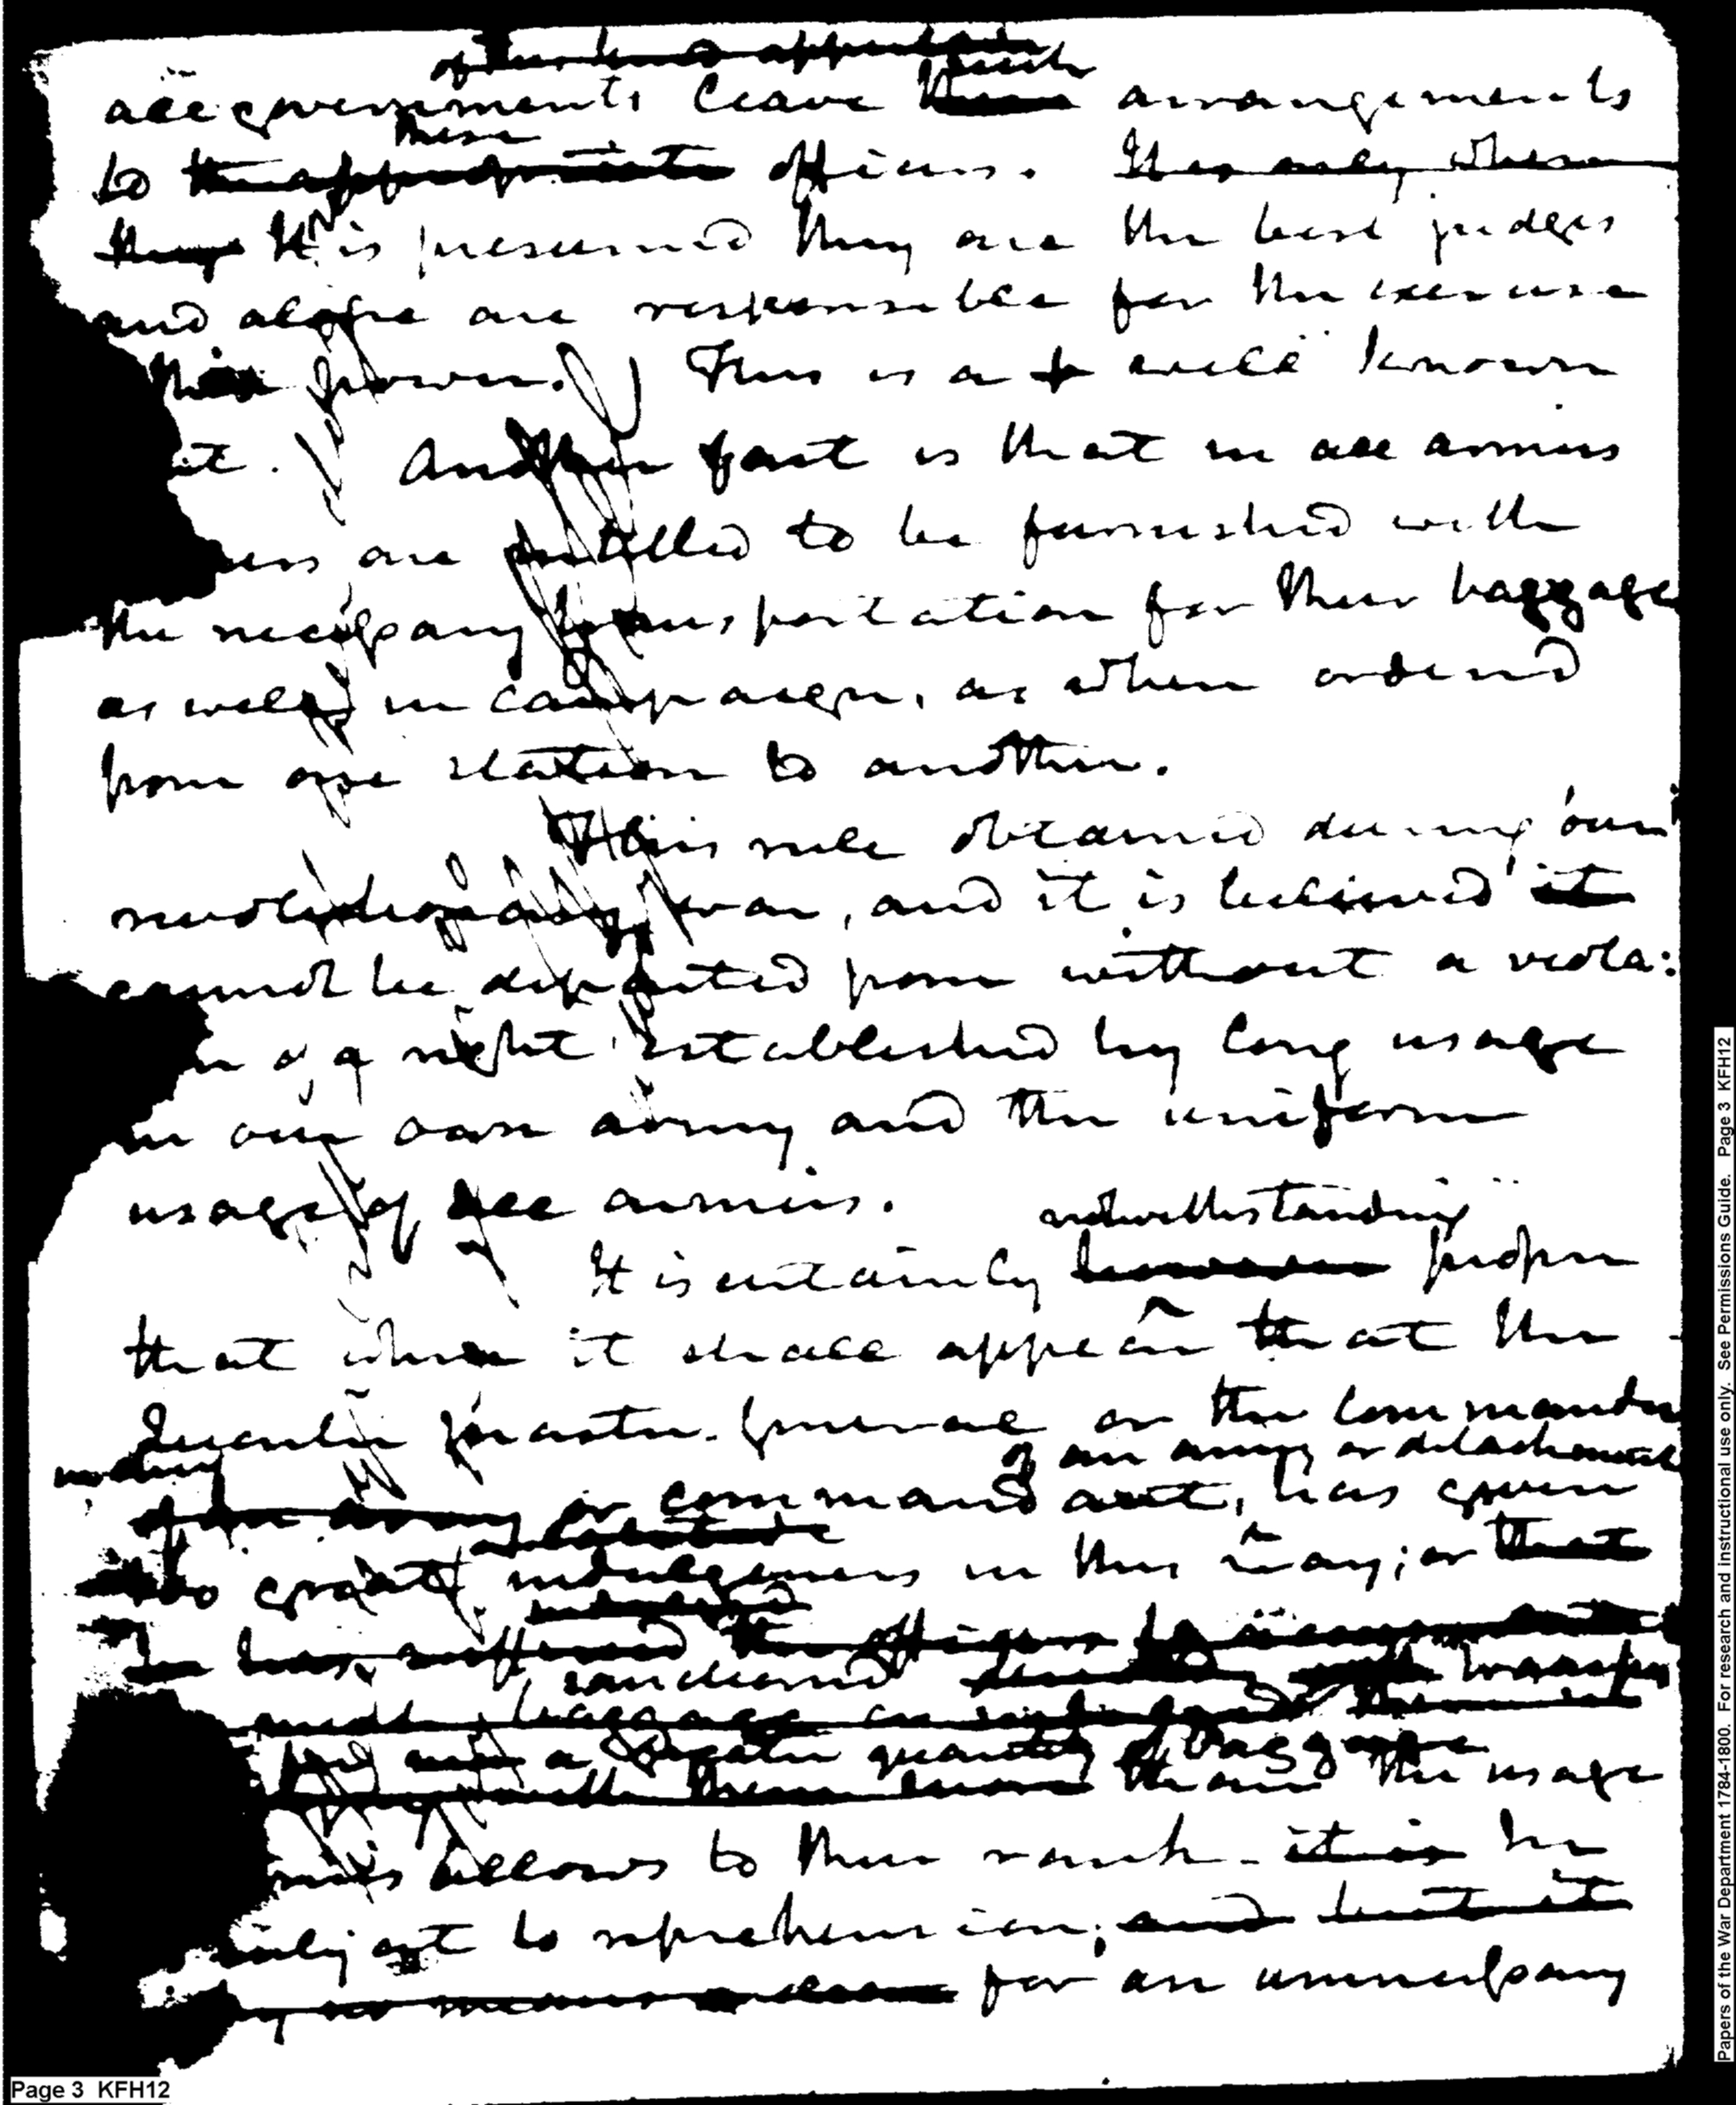 all governments leave such arrangements
to these officers. It is only when
they It is presumed they are the best judges
and alone are responsible for the exercise
power. This is a well known
Another fact is that in all armies
are entitled to be furnished with
the necessary transportation for their baggage
as well in campaign, as when ordered
from one station to another.
This rule obtained during our
revolutionary war, and it is believed it
cannot be departed from without a viola:
of a right established by long usage
in our own army and the uniform
usage of all armies.
notwithstanding
It is certainly however proper
that when it shall appear that the
Quarter master General or the commander
of an army or detachment
of an army or commandant, has given
too great indulgences in this way; or that
he has suffered the officers to
sanctioned
baggage
a greater quantity of baggage
with them than the usage
allows to their rank - it is he
subject to reprehension; and but it
for an unnecessary
Page 3 KFH12
Papers of the War Department 1784-1800. For research and instructional use only. See Permissions Guide. Page 3 KFH12